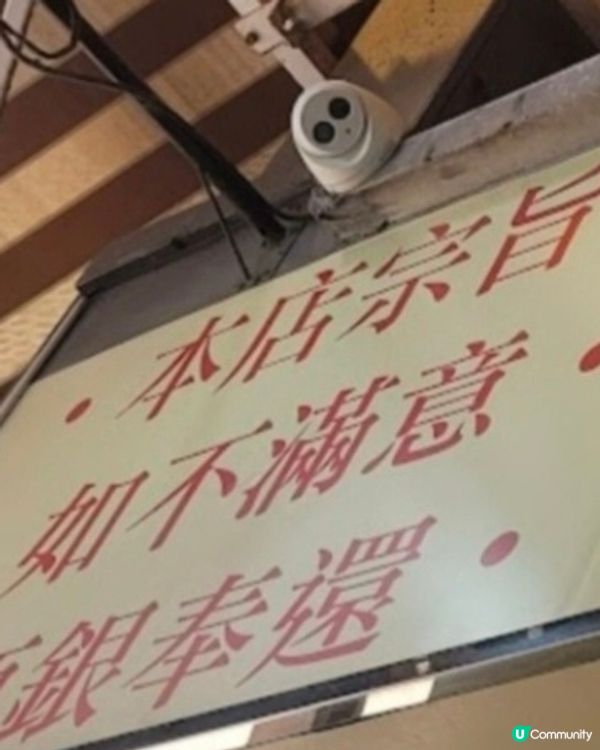 • 本店宗旨 •
如不滿意
銀奉還 •
U Community